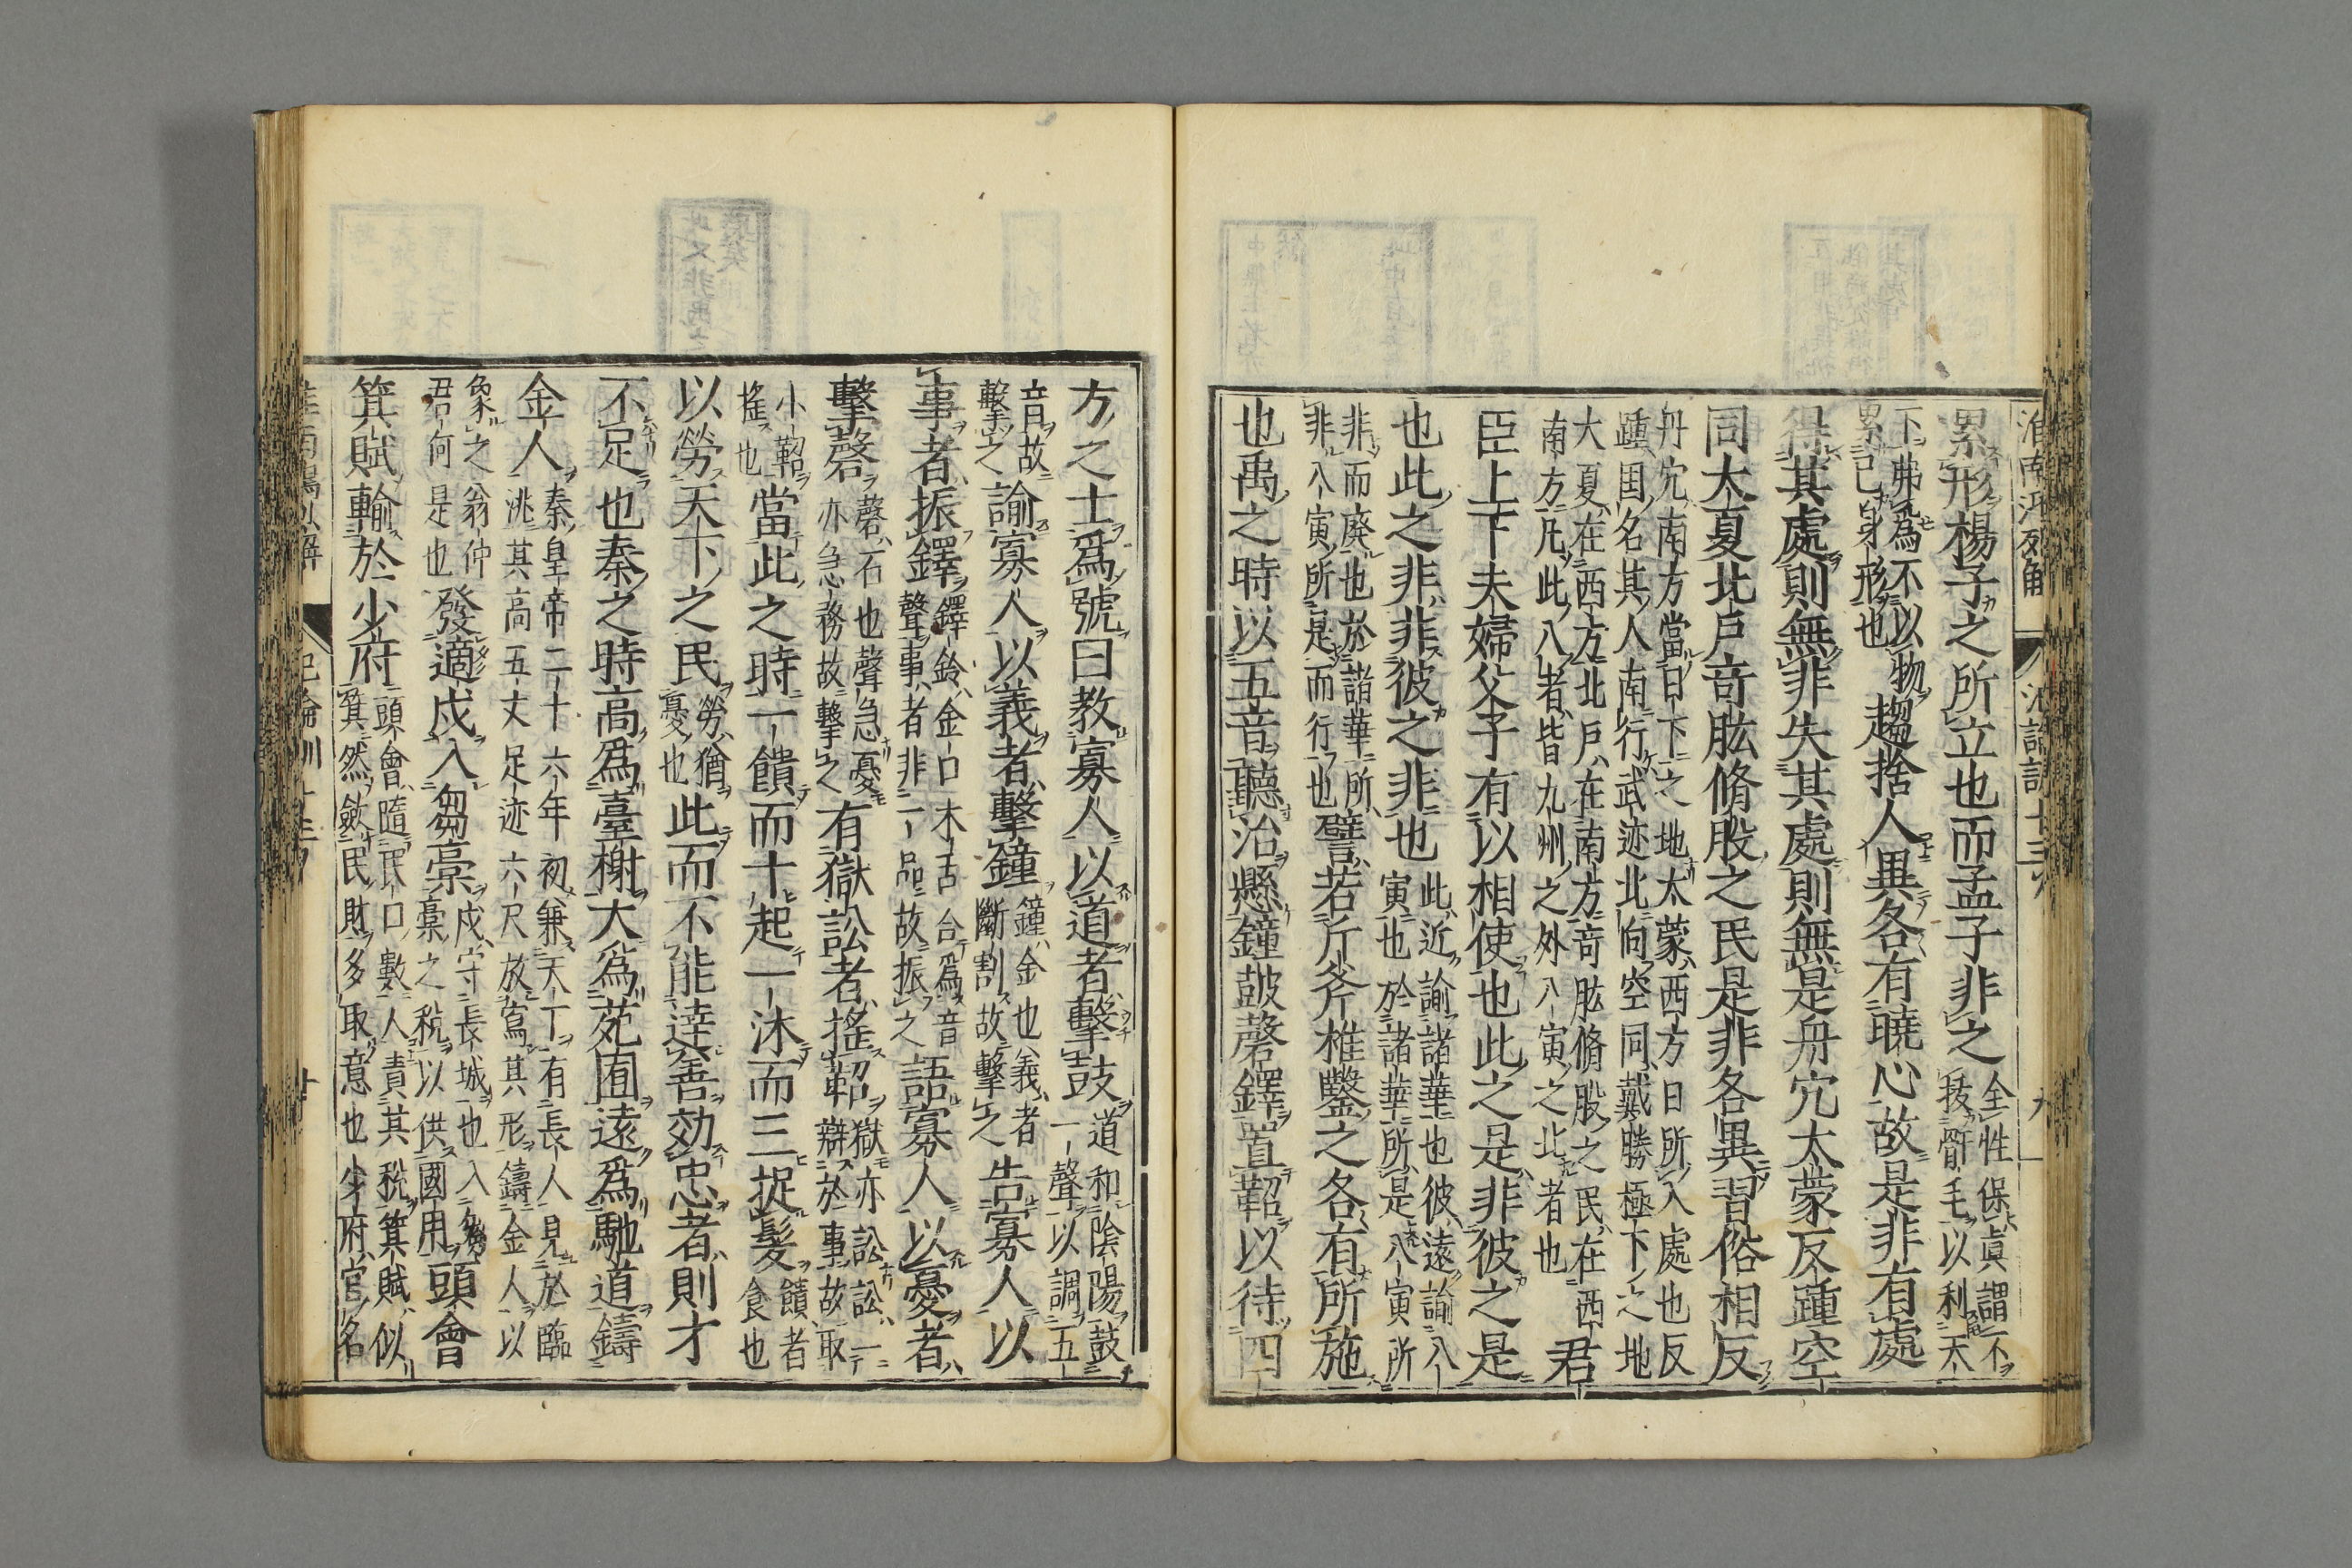 累形楊子之所立也而孟子非之全性保眞謂不拔骭毛以利天
下弗爲不以物累己身形也趨捨人異各有曉心故是非有處
得其處則無非失其處則無是丹穴太蒙反踵空
同大夏北戶奇肱脩股之民是非各異習俗相反
丹穴南方當日下之地太蒙西方日所入處也反踵國名其人南行武迹北向空同戴勝極下之地
大夏在西方北戶在南方奇肱脩股之民在西南方凡此八者皆九州之外八寅之北者也君
臣上下夫婦父子有以相使也此之是非彼之是
也此之非非彼之非也此近諭諸華也彼遠諭八寅也於諸華所是八寅所
非而廃也於諸華所非八寅所是而行也譬若斤斧椎鑿之各有所施
也禹之時以五音聽治懸鐘鼓磬鐸置鞀以待四
方之士爲號曰教寡人以道者擊鼓道和陰陽鼓一聲以調五
音故擊之諭寡人以義者擊鐘鐘金也義者斷割故擊之告寡人以
事者振鐸鐸鈴金口木舌合爲音聲事者非一品故振之語寡人以憂者
擊磬磬石也聲急憂亦急務故擊之有獄訟者搖鞀獄亦訟訟一辯於事故取
小鞀搖也當此之時一饋而十起一沐而三捉髮饋者食也
以勞天下之民勞猶憂也此而不能達善効忠者則才
不足也秦之時高爲臺榭大爲苑囿遠爲馳道鑄
金人秦皇帝二十六年初兼天下有長人見於臨洮其高五丈足迹六尺放寫其形鑄金人以
象之翁仲君何是也發適戍入芻稾戍守長城也入芻稾之稅以供國用頭會
箕賦輸於少府頭會隨民口數人責其稅箕賦似箕然斂民財多取意也少府官名